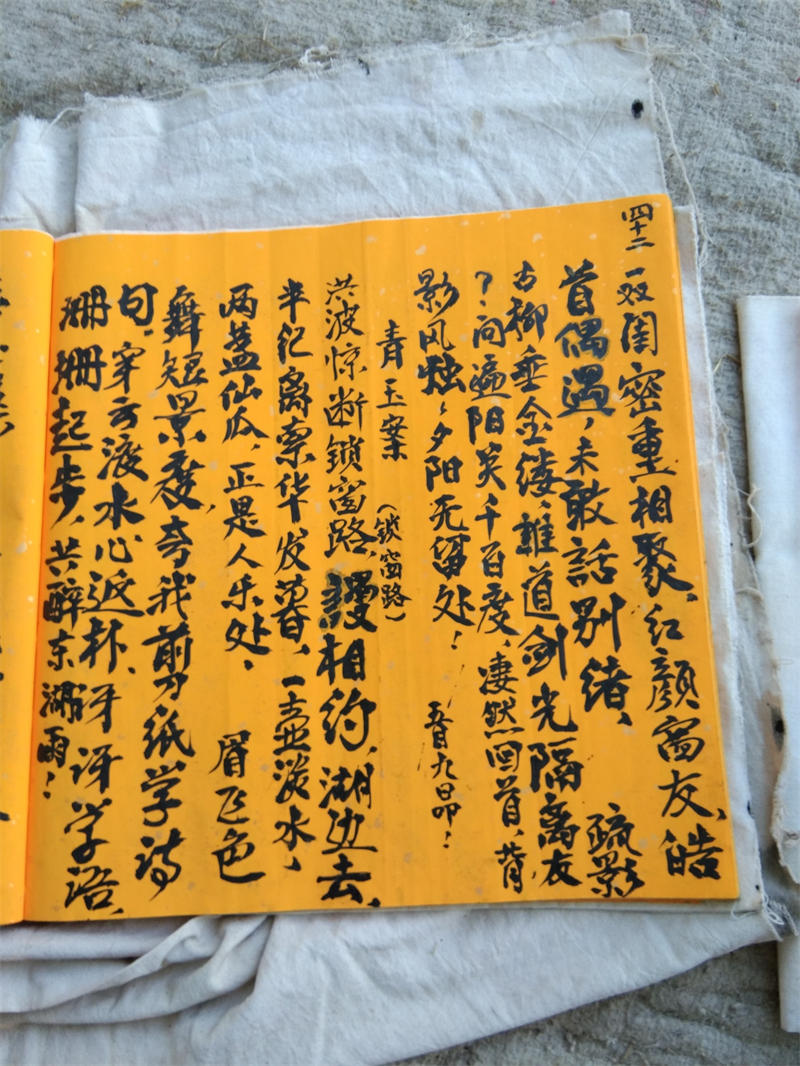 四十二
一双闺密重相聚、红颜窗友、皓
首偶遇,未敢話别绪、 疏影
古柳垂金缕、誰道剑光隔离友
?问遍阳关千百度、凄然回首、背
影风烛、夕阳无留处! 五月九日昴!
青玉案
(锁窗路)
洪波惊断锁窗路、謾相约、湖边去、
半纪离索华发暮、一壶淡水、
两盏仙瓜、正是人乐处、 眉飞色
舞短景度、夸我剪刀纸学诗
句、穿云渡水心返朴、呀讶学语、
珊珊起步、共醉东湖雨!